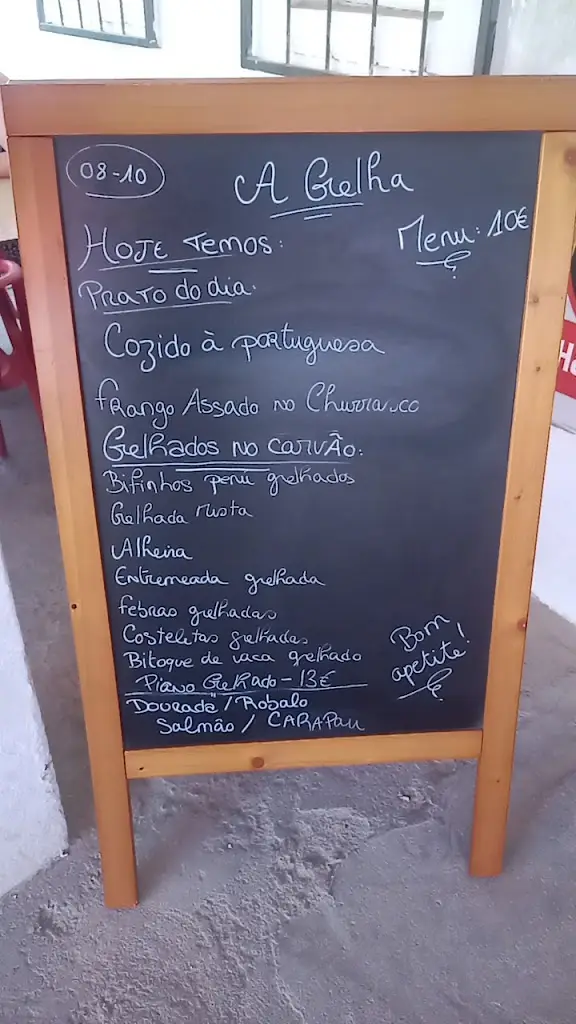 08-10
A Grelha
Menu: 10€
Hoje temos:
Prato do dia:
Cozido à portuguesa
frango Assado no Churrasco
Grelhados no carvão:
Bifinhos perú grelhados
Grelhada mista
Alheira
Entremeada grelhada
febras grelhadas
Costeletas grelhadas
Bitoque de vaca grelhado
Piano Grelhado - 13€
Dourada / Robalo
Salmão / CARAPAU
Bom
apetite!